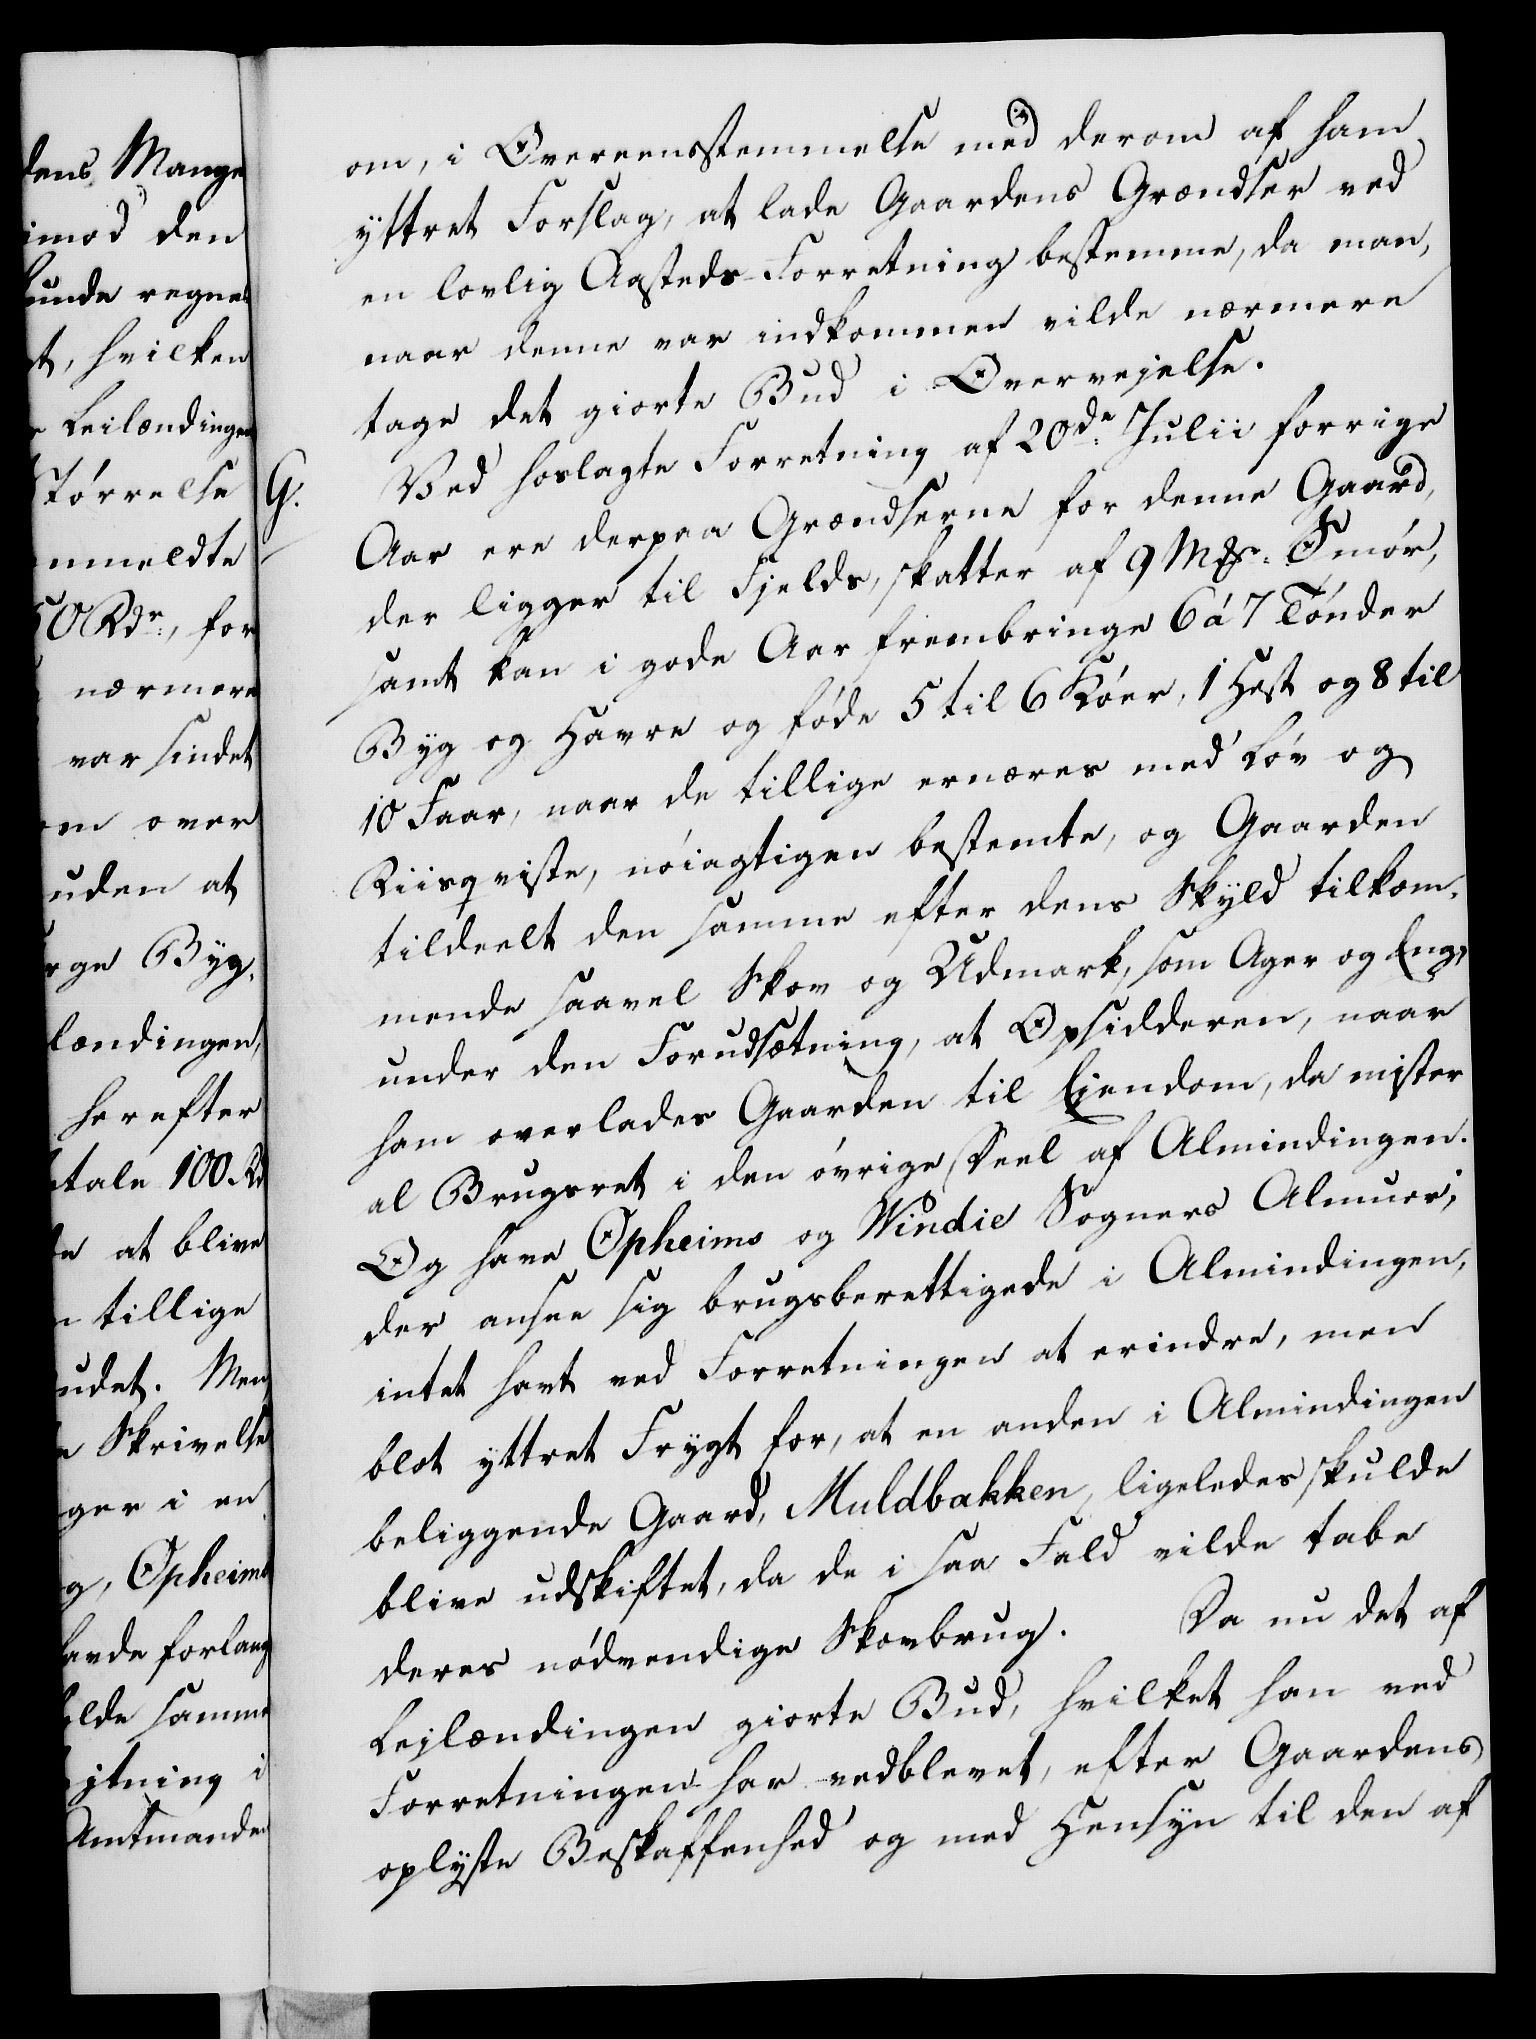 dens Mange
imod den
unde regnes
t, hvilken
Leilændingen
størrelse
nmeldte
50 Rdr., for
nærmere
var sindet
om over
uden at
rge Byg,
lændingen,
herefter
tale 100 Rd
e at blive
tillige
udet. Men
Skrivelse
ger i en
g, Opheims
avde forlang
lde samme
jtning i
Amtmanden
om, i Overeensstemmelse med derom af ham
yttret Forslag, at lade Gaardens Grændser ved
en lovlig Aasteds-Forretning bestemme, da man,
naar denne var indkommen vilde nærmere
tage det giorte Bud i Overvejelse.
G. Ved hoslagte Forretning af 20de Julii forrige
Aar ere derpaa Grændserne for denne Gaard,
der ligger til Fjelds, skatter af 9 Mkr. Smór,
samt kan i gode Aar frembringe 6 á 7 Tónder
Byg og Havre og fóde 5 til 6 Kóer, 1 Hest og 8 til
10 Faar, naar de tillige ernæres med Lóv og
Riisqviste, nóiagtigen bestemte, og Gaarden
tildeelt den samme efter dens Skyld tilkom-
mende saavel Skov og Udmark, som Ager og Eng,
under den Forudsætning, at Opsidderen, naar
ham overlades Gaarden til Eiendom, da mister
al Brugsret i den óvrige Deel af Almindingen.
Og have Opheims og Windie Sogners Almuer,
der ansee sig brugsberettigede i Almindingen,
intet havt ved Forretningen at erindre, men
blot yttret Frygt for, at en anden i Almindingen
beliggende Gaard, Muldbakken, ligeledes skulde
blive udskiftet, da de i saa Fald vilde tabe
deres nódvendige Skovbrug. Da nu det af
Lejlændingen giorte Bud, hvilket han ved
Forretningen har vedblevet, efter Gaardens
oplyste Beskaffenhed og med Hensyn til den af